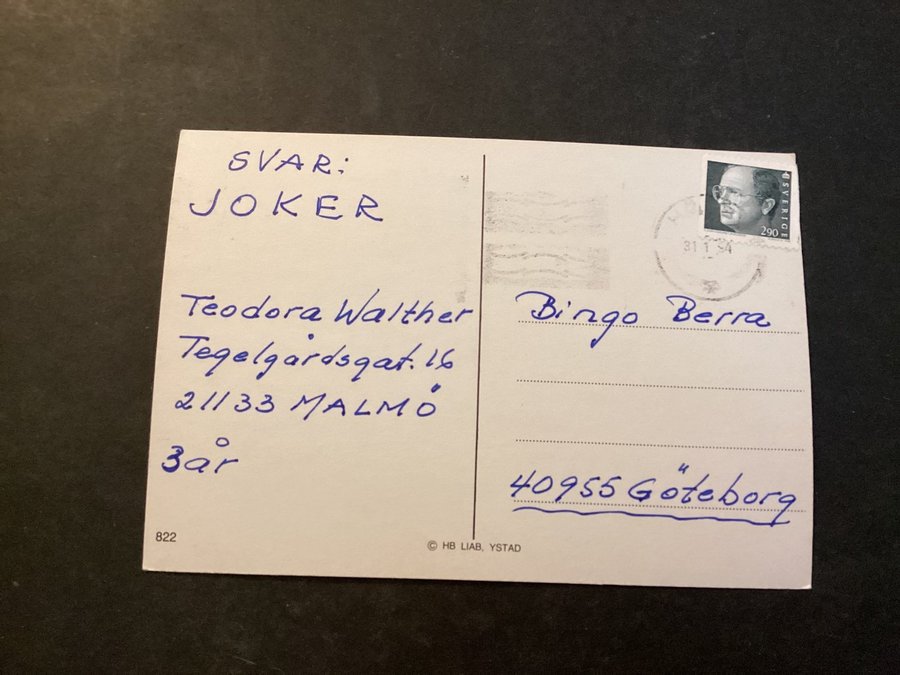 SVAR:
JOKER
Teodora Walther
Tegelgårdsgat. 16
21133 MALMÖ
3år
822
© HB LIAB, YSTAD
SVERIGE
290
31 1 94
Bingo Berra
40955 Göteborg